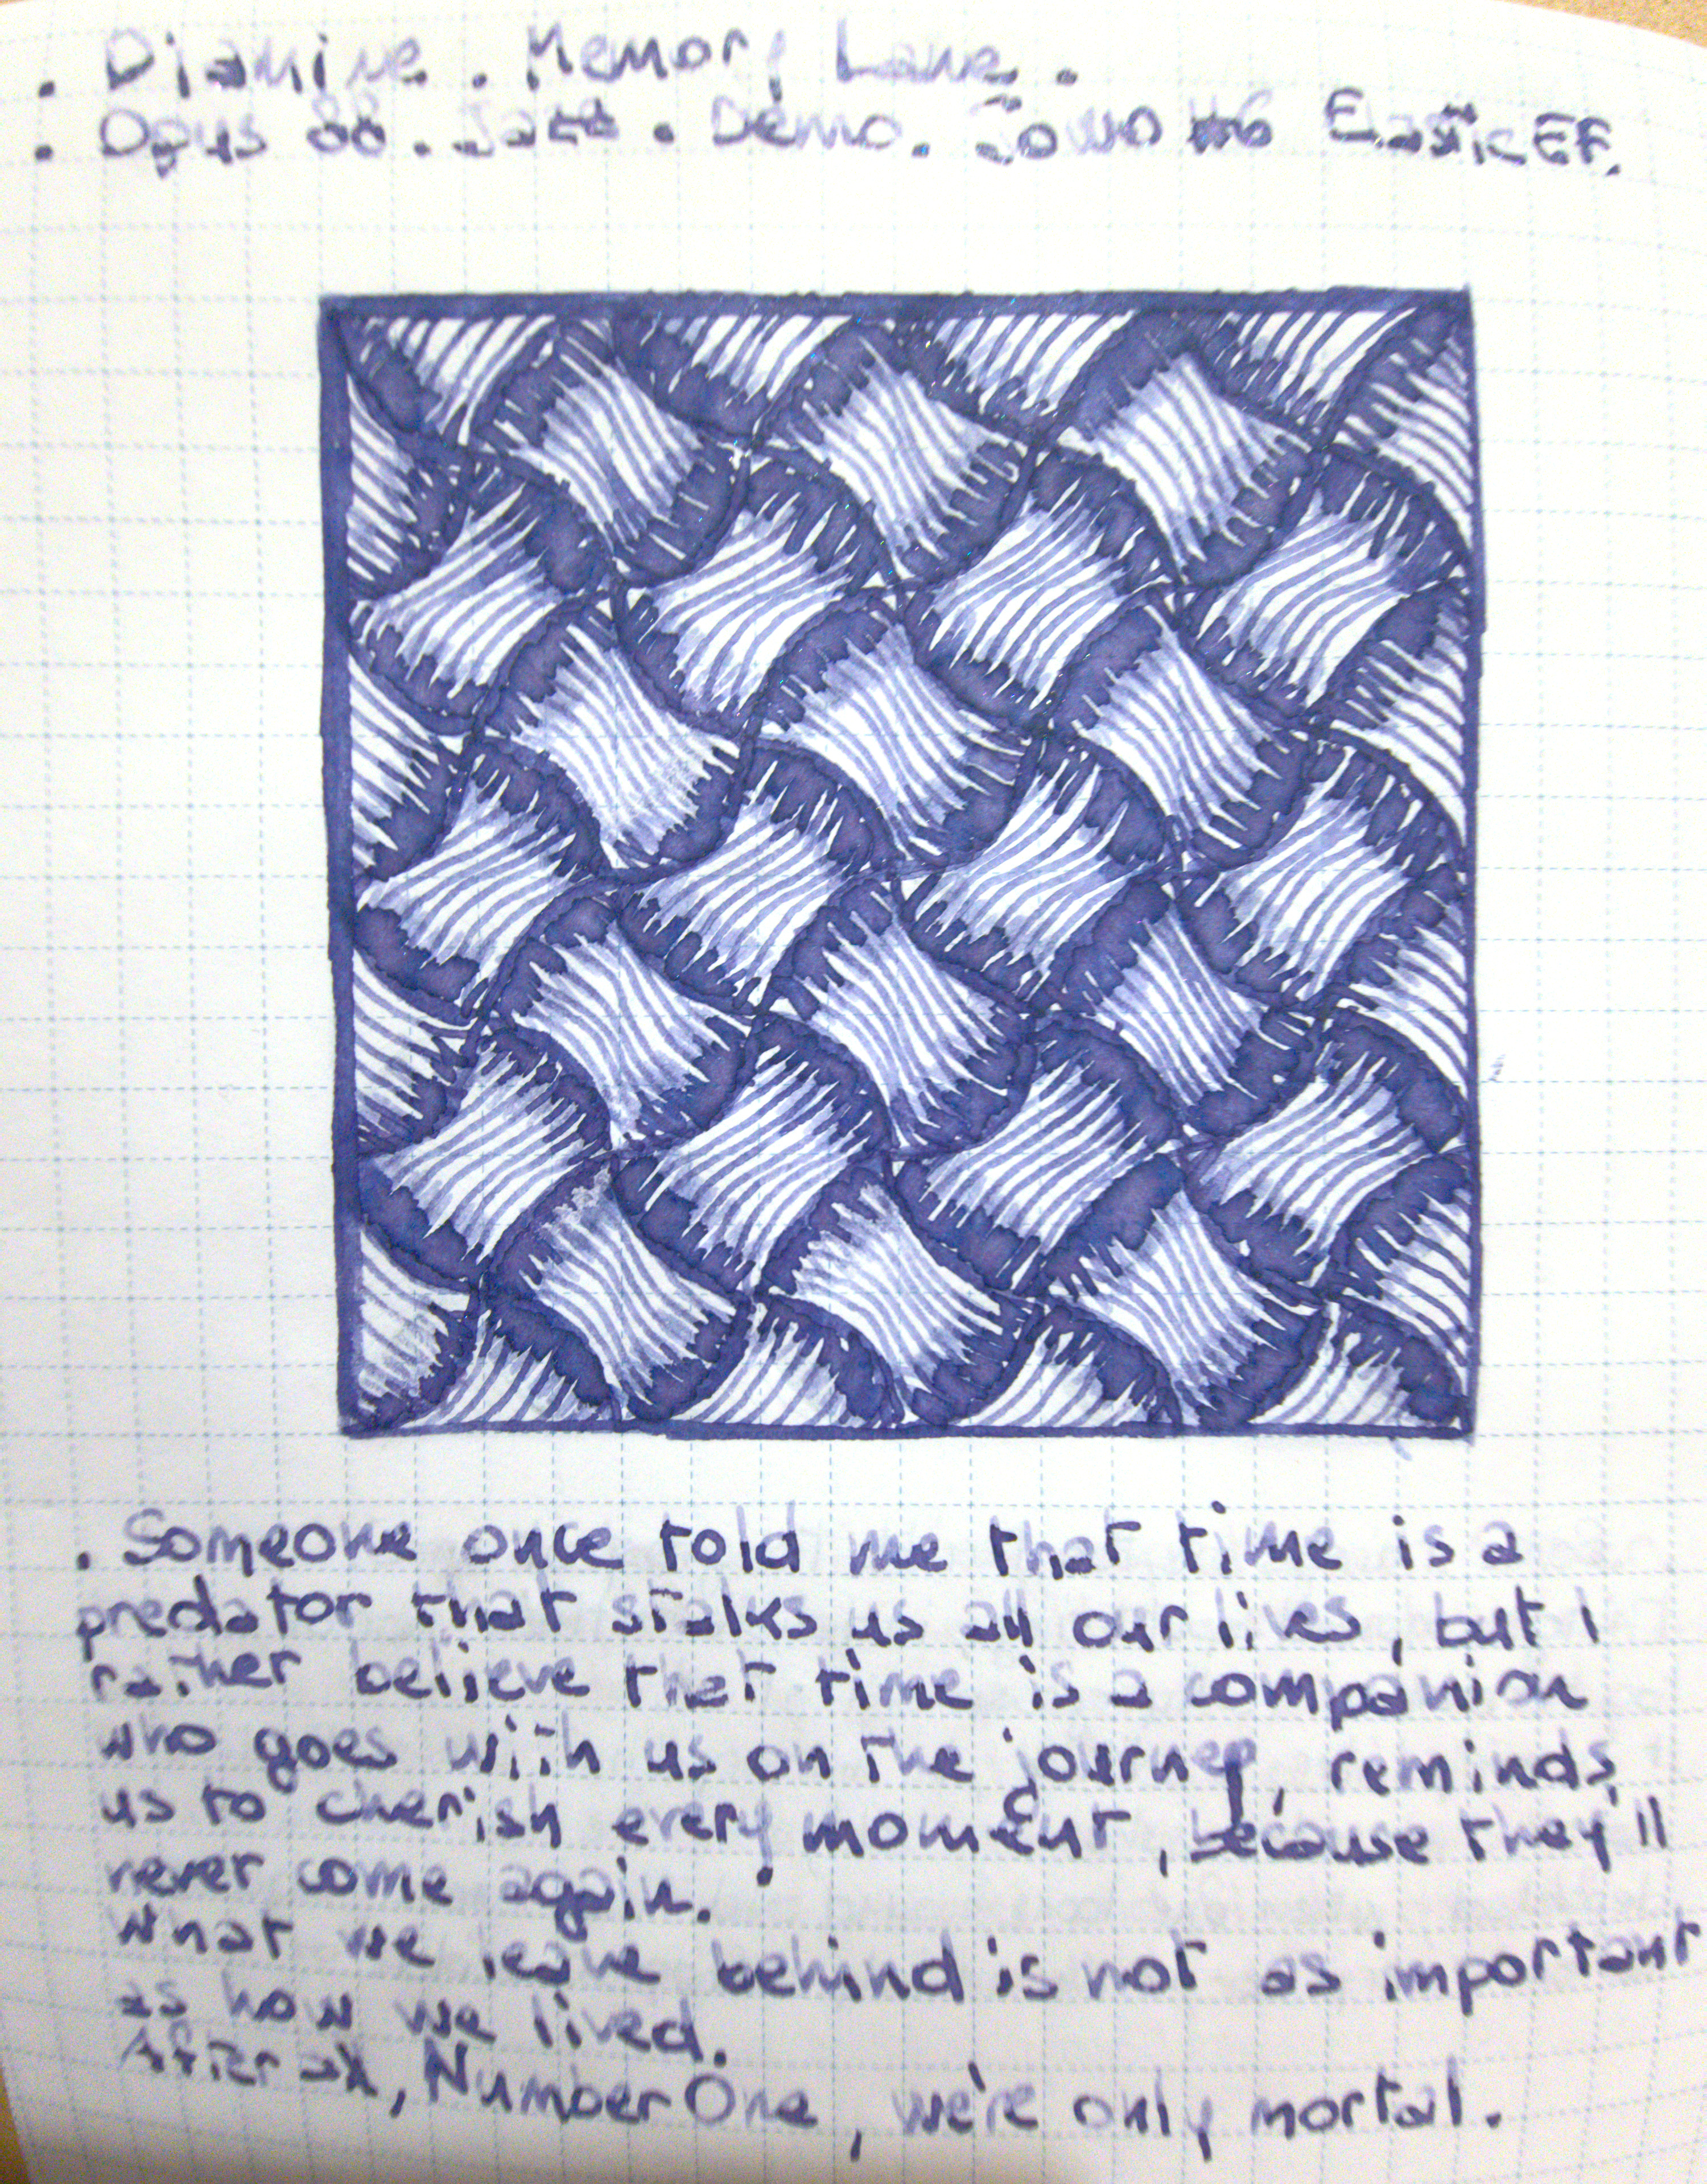 . Diamine . Memory Lane .
. Opus 88 . Jazz . Demo . Jowo #6 Elastic EF.
. Someone once told me that time is a
predator that stalks us all our lives, but I
rather believe that time is a companion
who goes with us on the journey, reminds
us to cherish every moment, because they'll
never come again.
What we leave behind is not as important
as how we lived.
After all, Number One, we're only mortal.